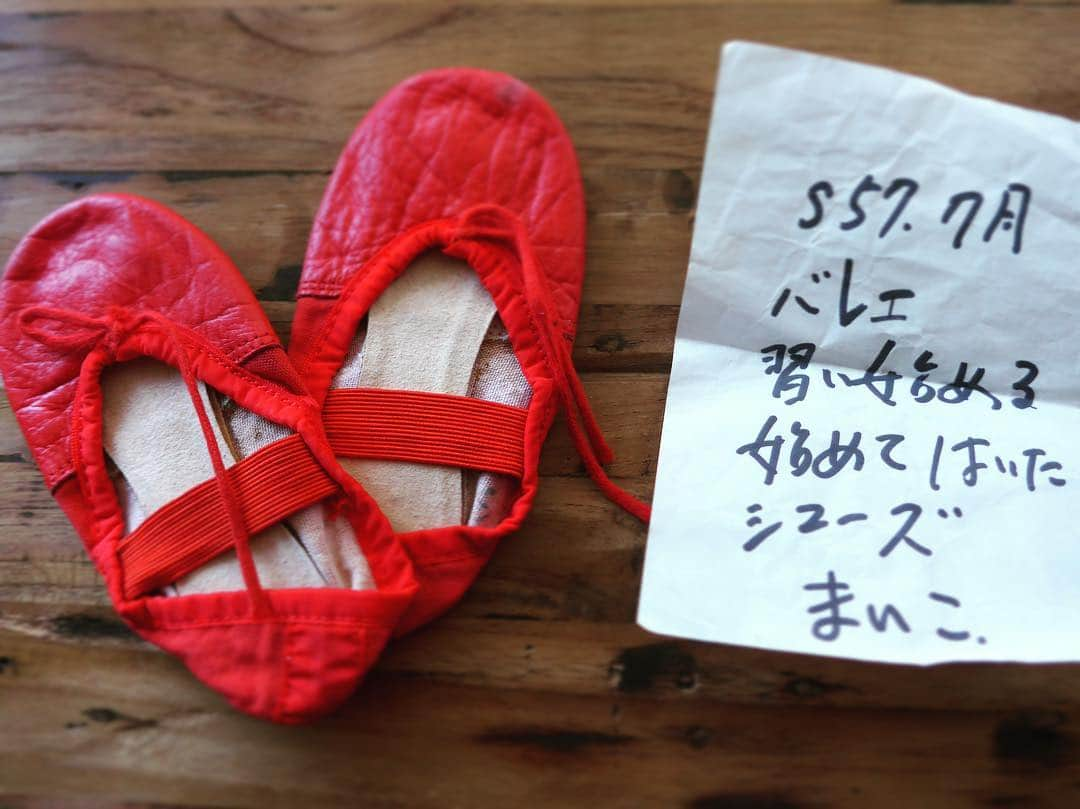 S57.7月
バレエ
習い始める
始めてはいた
シューズ
まいこ.